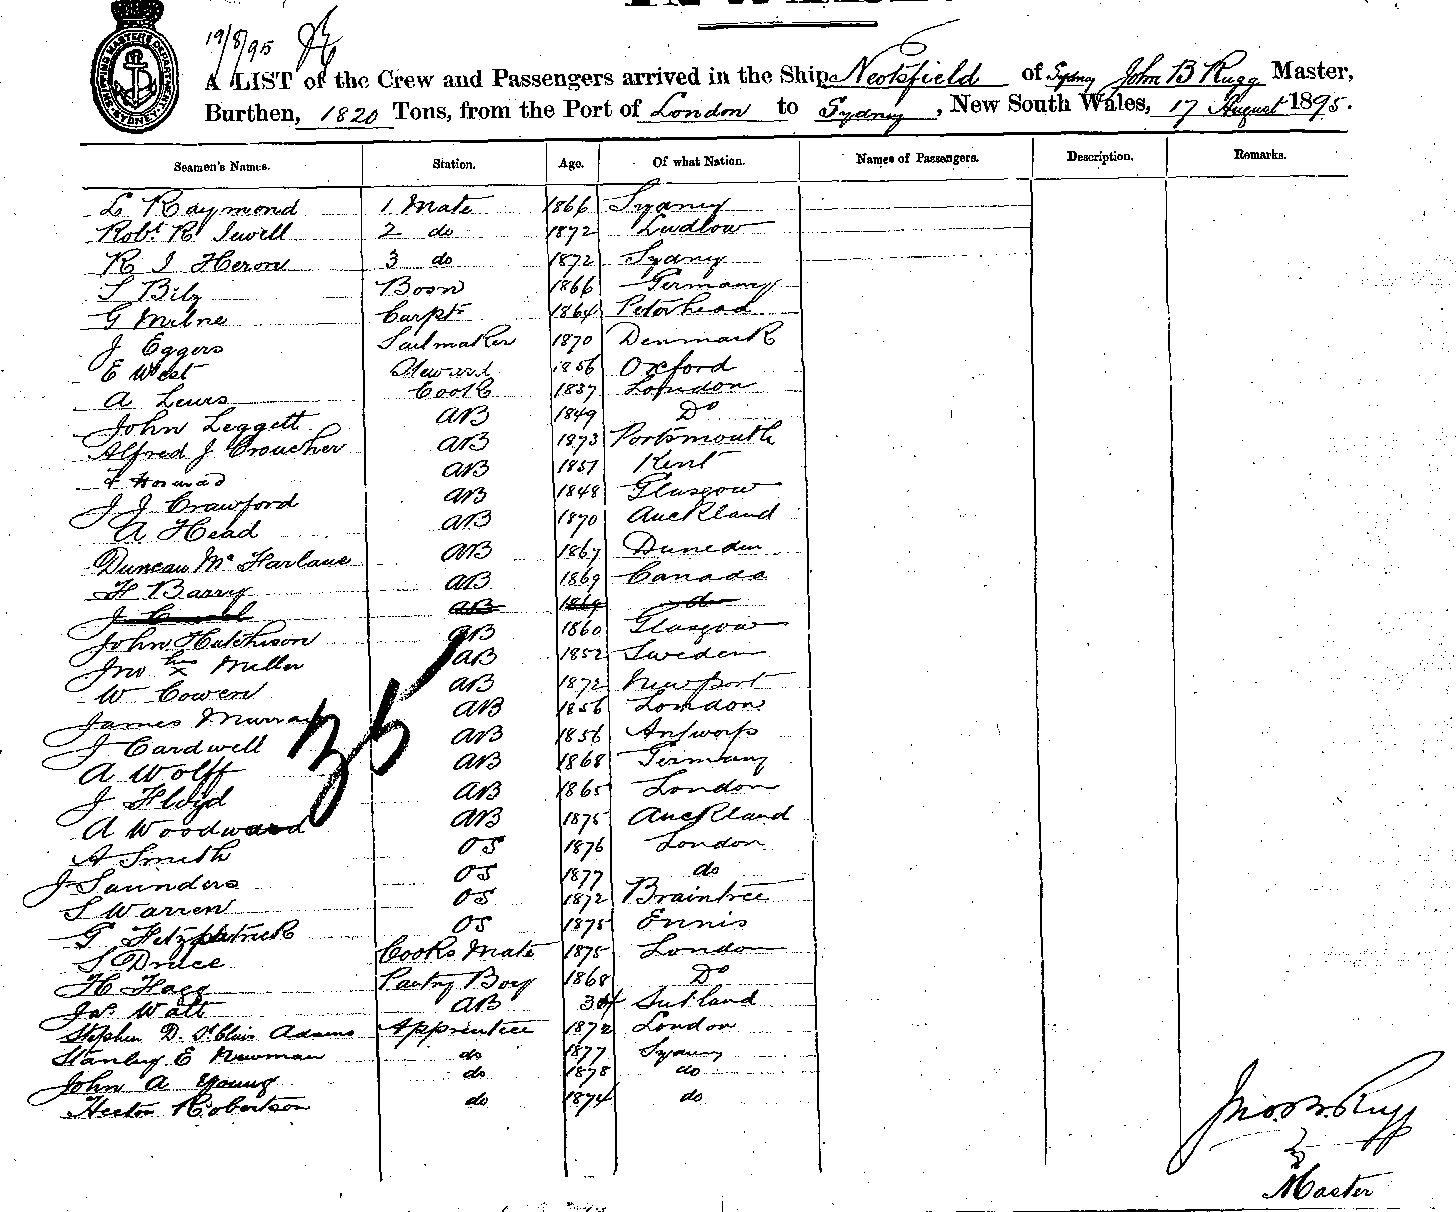 SHIPPING MASTERS DEPARTMENT SYDNEY
19/8/95
A LIST of the Crew and Passengers arrived in the Ship Neotsfield of Sydney John B Rugg Master,
Burthen, 1820 Tons, from the Port of London to Sydney, New South Wales, 17 August 1895.
Seamen's Names. Station. Age. Of what Nation. Names of Passengers. Description. Remarks.
L Raymond 1 Mate 1866 Sydney
Robt R Jewell 2 do 1872 Ludlow
R J Heron 3 do 1872 Sydney
Bosn 1866 Germany
G Milne Carptr 1864 Peterhead
J Eggers Sailmaker 1870 Denmark
E West Steward 1856 Oxford
A Lewis Cook 1837 London
John Leggett AB 1849 Do
Alfred J Croucher AB 1873 Portsmouth
AB 1857 Kent
J J Crawford AB 1848 Glasgow
A Head AB 1870 Auckland
Duncan McFarlane AB 1867 Duneden
H Barry AB 1869 Canada
J AB 1869 do
John Hutchison AB 1860 Glasgow
Jno his x Miller AB 1852 Sweden
W Cowen AB 1872 Newport
James Murray AB 1856 London
J Cardwell AB 1856 Antwerp
A Wolff AB 1868 Germany
J Floyd AB 1865 London
A Woodward AB 1875 Auckland
A Smith OS 1876 London
J Saunders OS 1877 do
S Warren OS 1872 Braintree
G Fitzpatrick OS 1875 Ennis
S Druce Cooks Mate 1875 London
H Pantry Boy 1868 Do
Jas Watt AB 34
Stephen D. St Clair Adams Apprentice 1872 London
Stanley E Newman do 1877 Sydney
John A Young do 1878 do
Hector Robertson do 1874 do
35
Jno. B. Rugg
Master